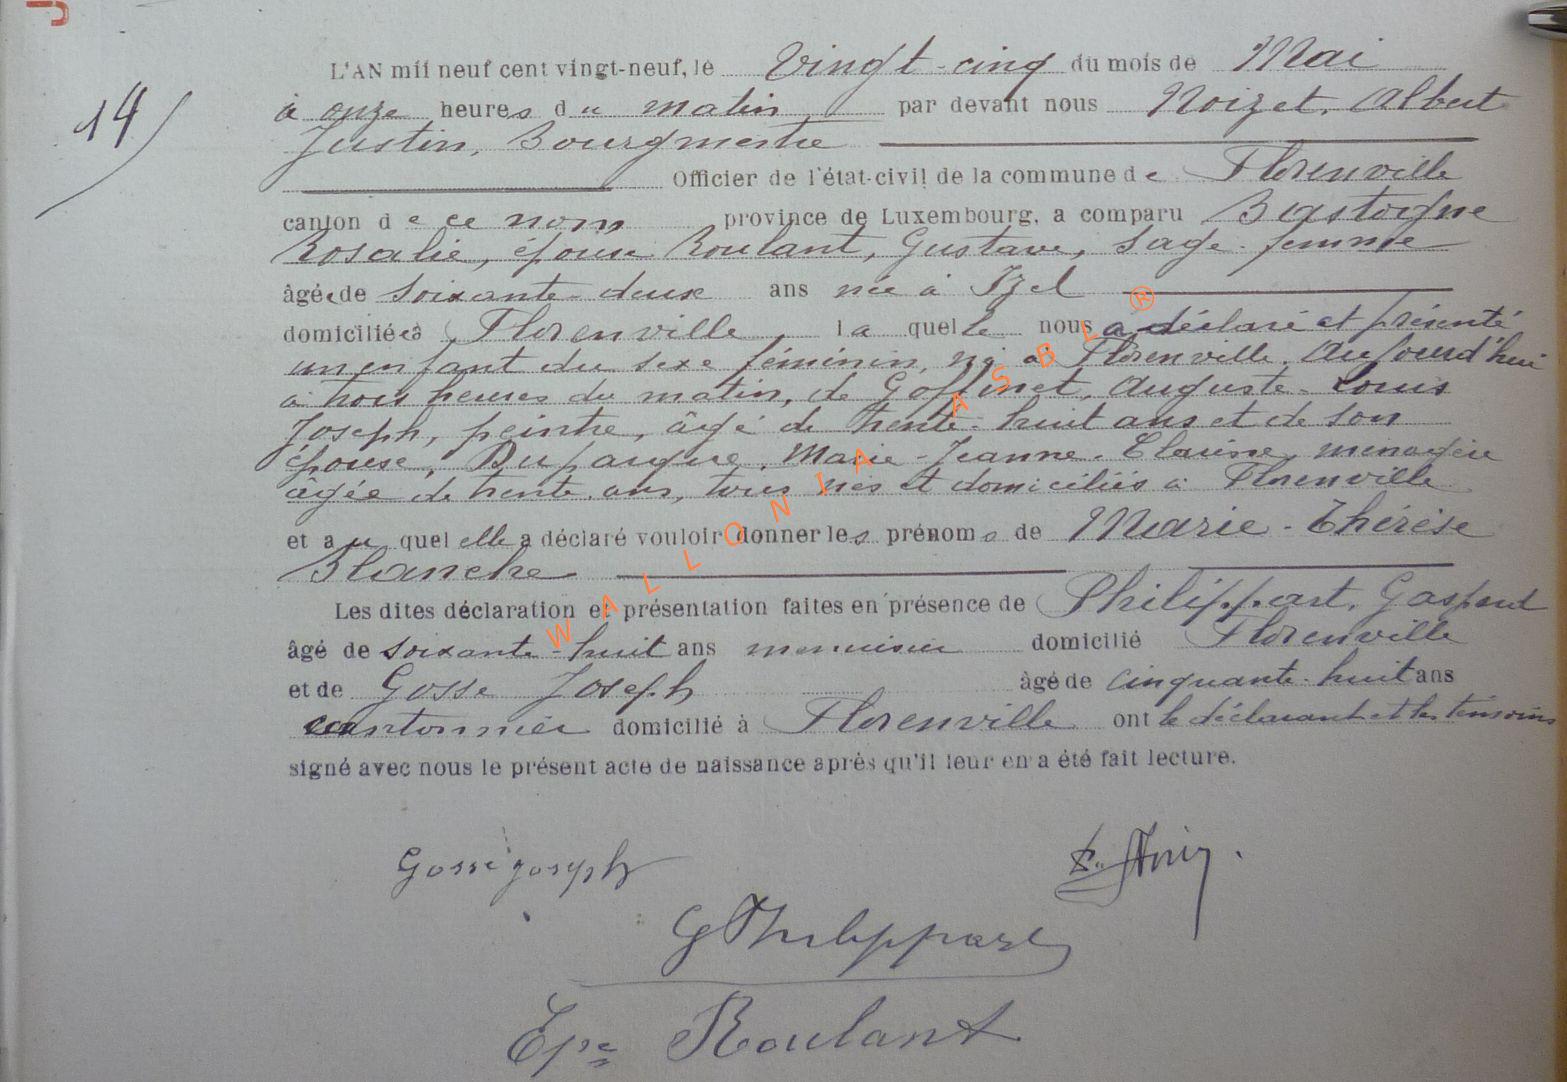 14
L'AN mil neuf cent vingt-neuf, le Vingt-cinq du mois de Mai
à onze heures du matin par devant nous Noizet, Albert
Justin, Bourgmestre
Officier de l'état-civil de la commune de Florenville
canton de ce nom province de Luxembourg, a comparu Bastogne
Rosalie, épouse Roulant, Gustave, sage-femme
âgée de soixante-deux ans née à Izel
domiciliée à Florenville laquelle nous a déclaré et présenté
un enfant du sexe féminin, né à Florenville, aujourd'hui
à trois heures du matin, de Goffinet, Auguste-Louis
Joseph, peintre, âgé de trente-huit ans et de son
épouse, Dupargue, Marie-Jeanne-Clarisse, ménagère
âgée de trente ans, tous nés et domiciliés à Florenville
et auquel elle a déclaré vouloir donner les prénoms de Marie-Thérèse
Blanche
Les dites déclaration et présentation faites en présence de Philippart, Gaspard
âgé de soixante-huit ans menuisier domicilié Florenville
et de Gosse Joseph âgé de cinquante-huit ans
cantonnier domicilié à Florenville ont le déclarant et les témoins
signé avec nous le présent acte de naissance après qu'il leur en a été fait lecture.
Gosse Joseph
G Philippart
Epse Roulant
WALLONIA ASBL ®